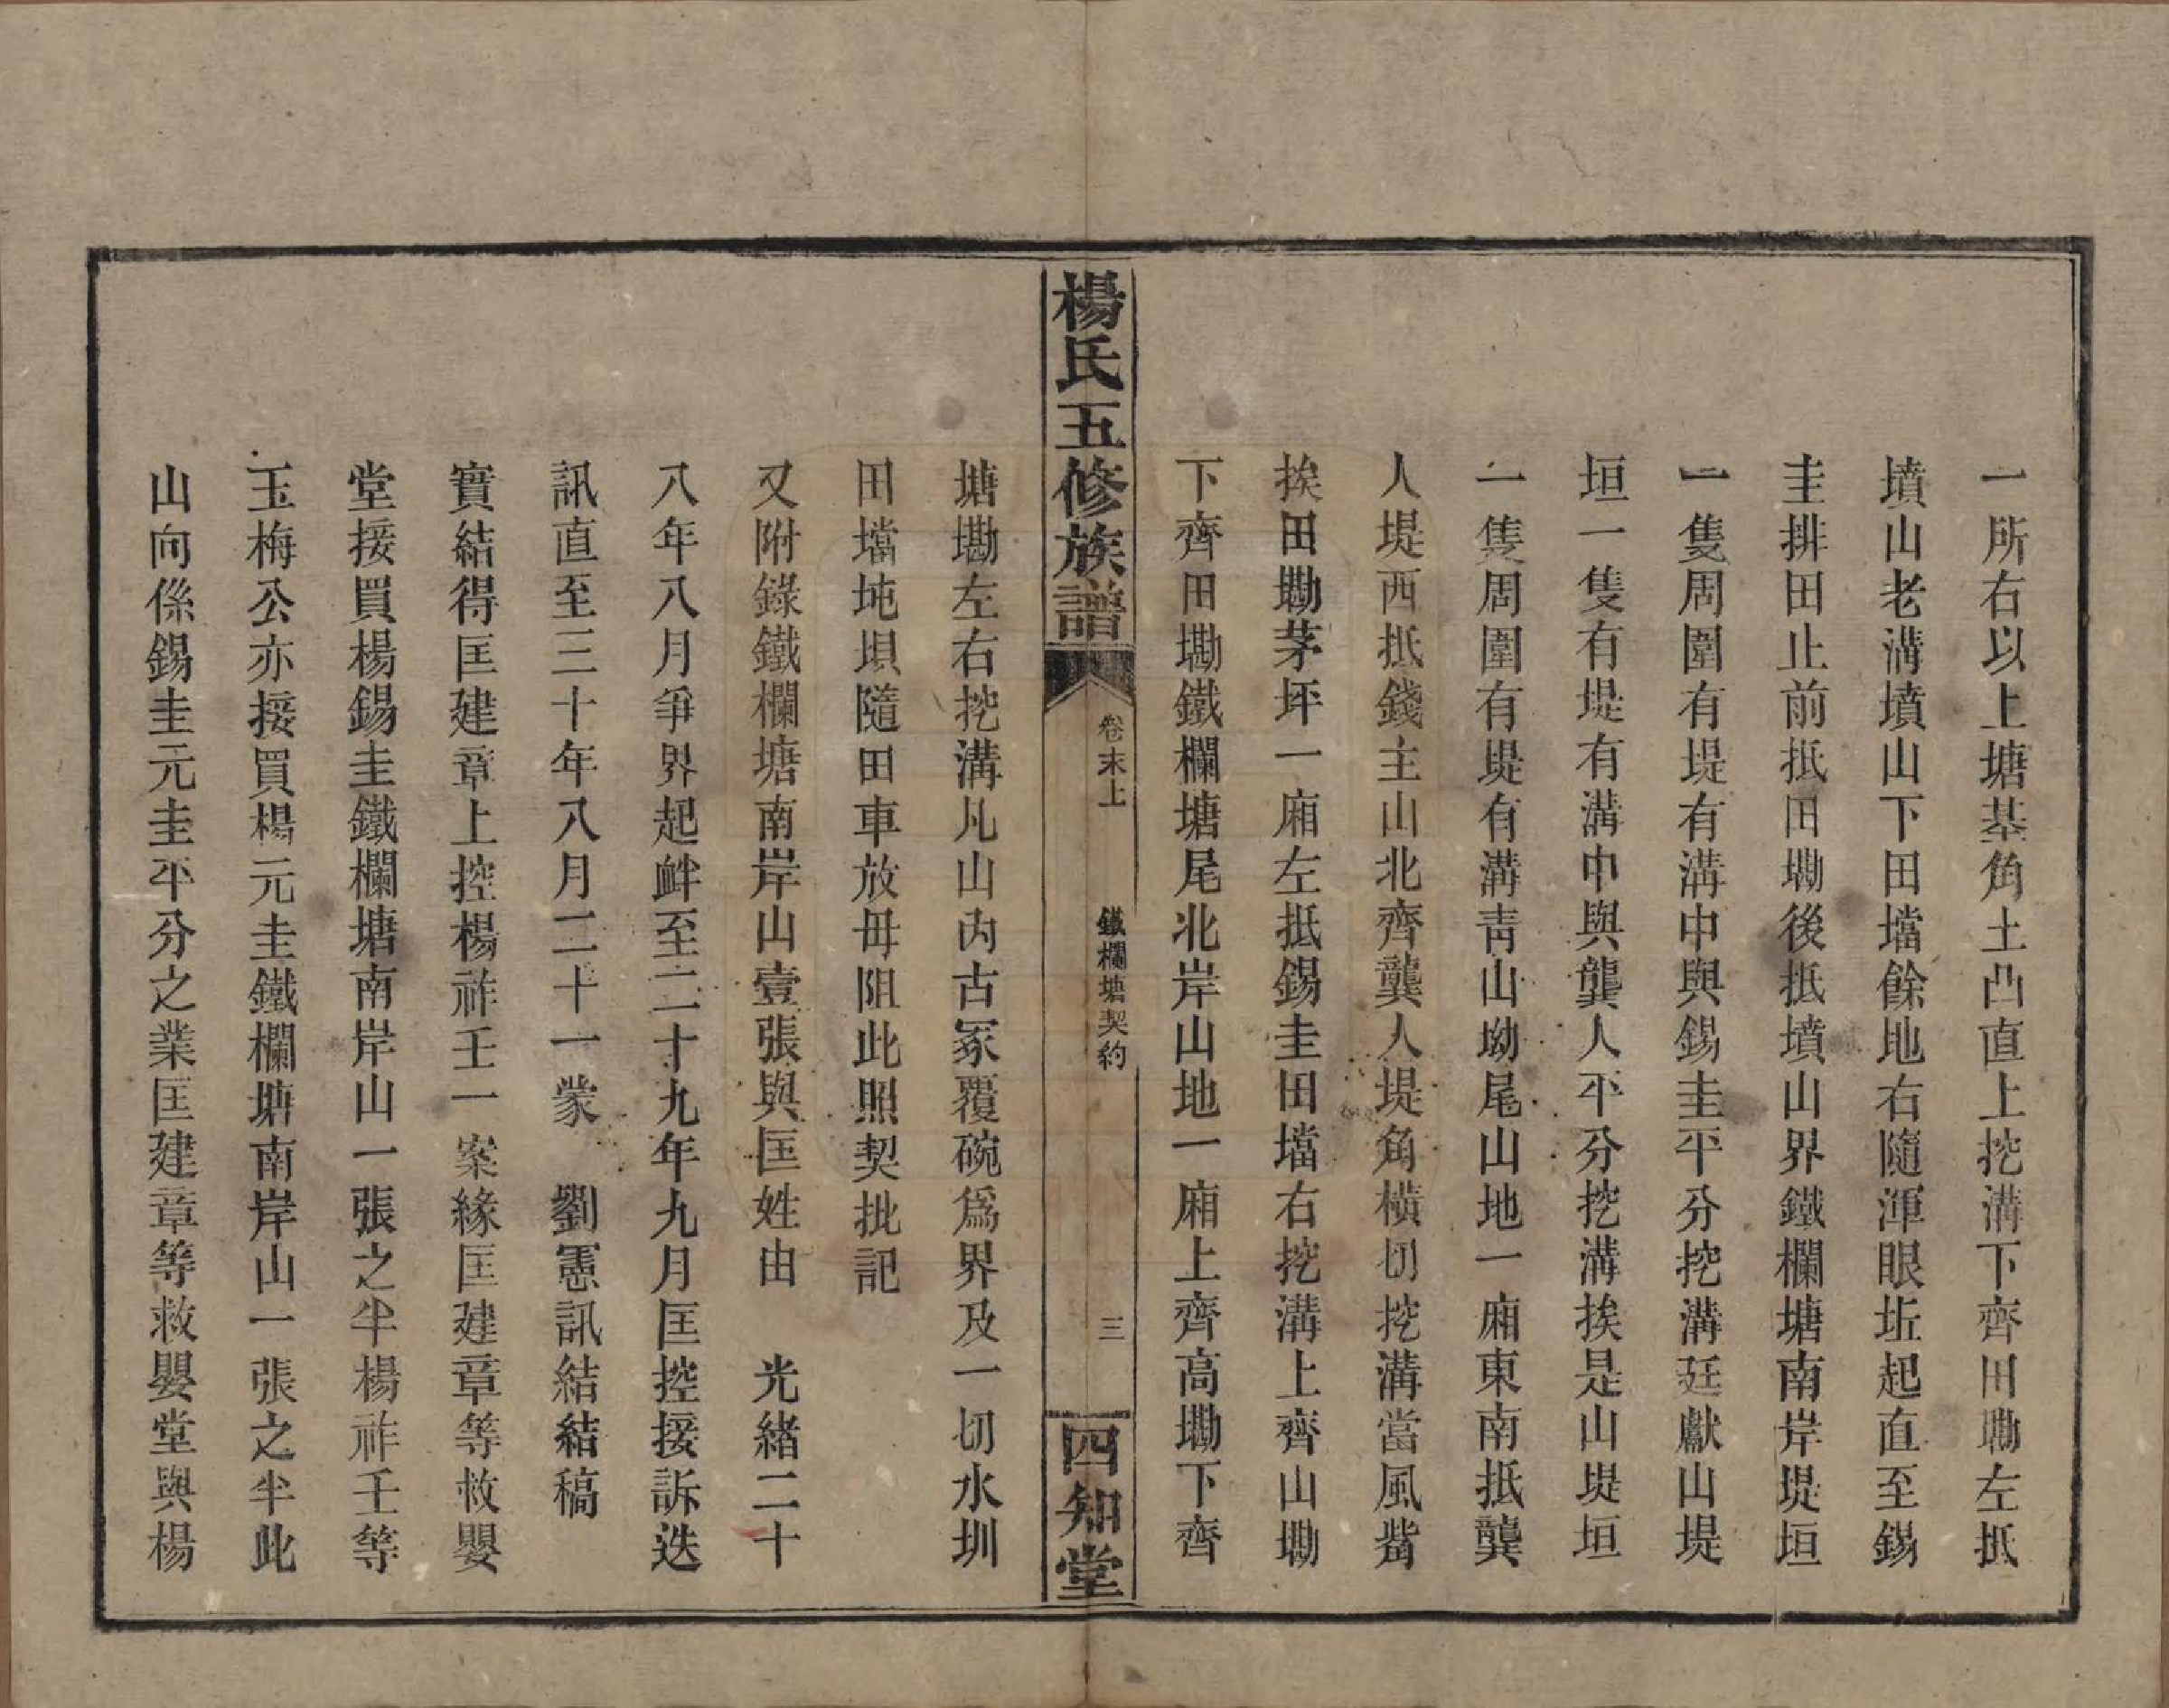 一所右以上塘基角土凸直上挖溝下齊田墈左抵
墳山老溝墳山下田壋餘地右隨渾眼坵起直至錫
圭排田止前抵田墈後抵墳山界鐵欄塘南岸堤垣
一隻周圍有堤有溝中與錫圭平分挖溝廷獻山堤
垣一隻有堤有溝中與龔人平分挖溝挨是山堤垣
一隻周圍有堤有溝靑山坳尾山地一廂東南抵龔
人堤西抵錢主山北齊龔人堤角橫切挖溝當風觜
挨田墈茅坪一廂左抵錫圭田壋右挖溝上齊山墈
下齊田墈鐵欄塘尾北岸山地一廂上齊高墈下齊
楊氏五修族譜
卷末上
鐵欄塘契約
三
四知堂
塘墈左右挖溝凡山內古冢覆碗爲界及一切水圳
田壋坉垻隨田車放毋阻此照契批記
又附錄鐵欄塘南岸山壹張與匡姓由　光緒二十
八年八月爭界起衅至二十九年九月匡控接訴迭
訊直至三十年八月二十一蒙　劉憲訊結結稿
實結得匡建章上控楊祚壬一案緣匡建章等救嬰
堂接買楊錫圭鐵欄塘南岸山一張之半楊祚壬等
玉梅公亦接買楊元圭鐵欄塘南岸山一張之半此
山向係錫圭元圭平分之業匡建章等救嬰堂與楊